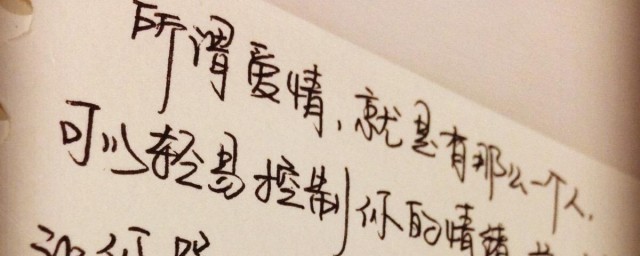 所谓爱情，就是有那么一个人，
可以轻易控制你的情绪